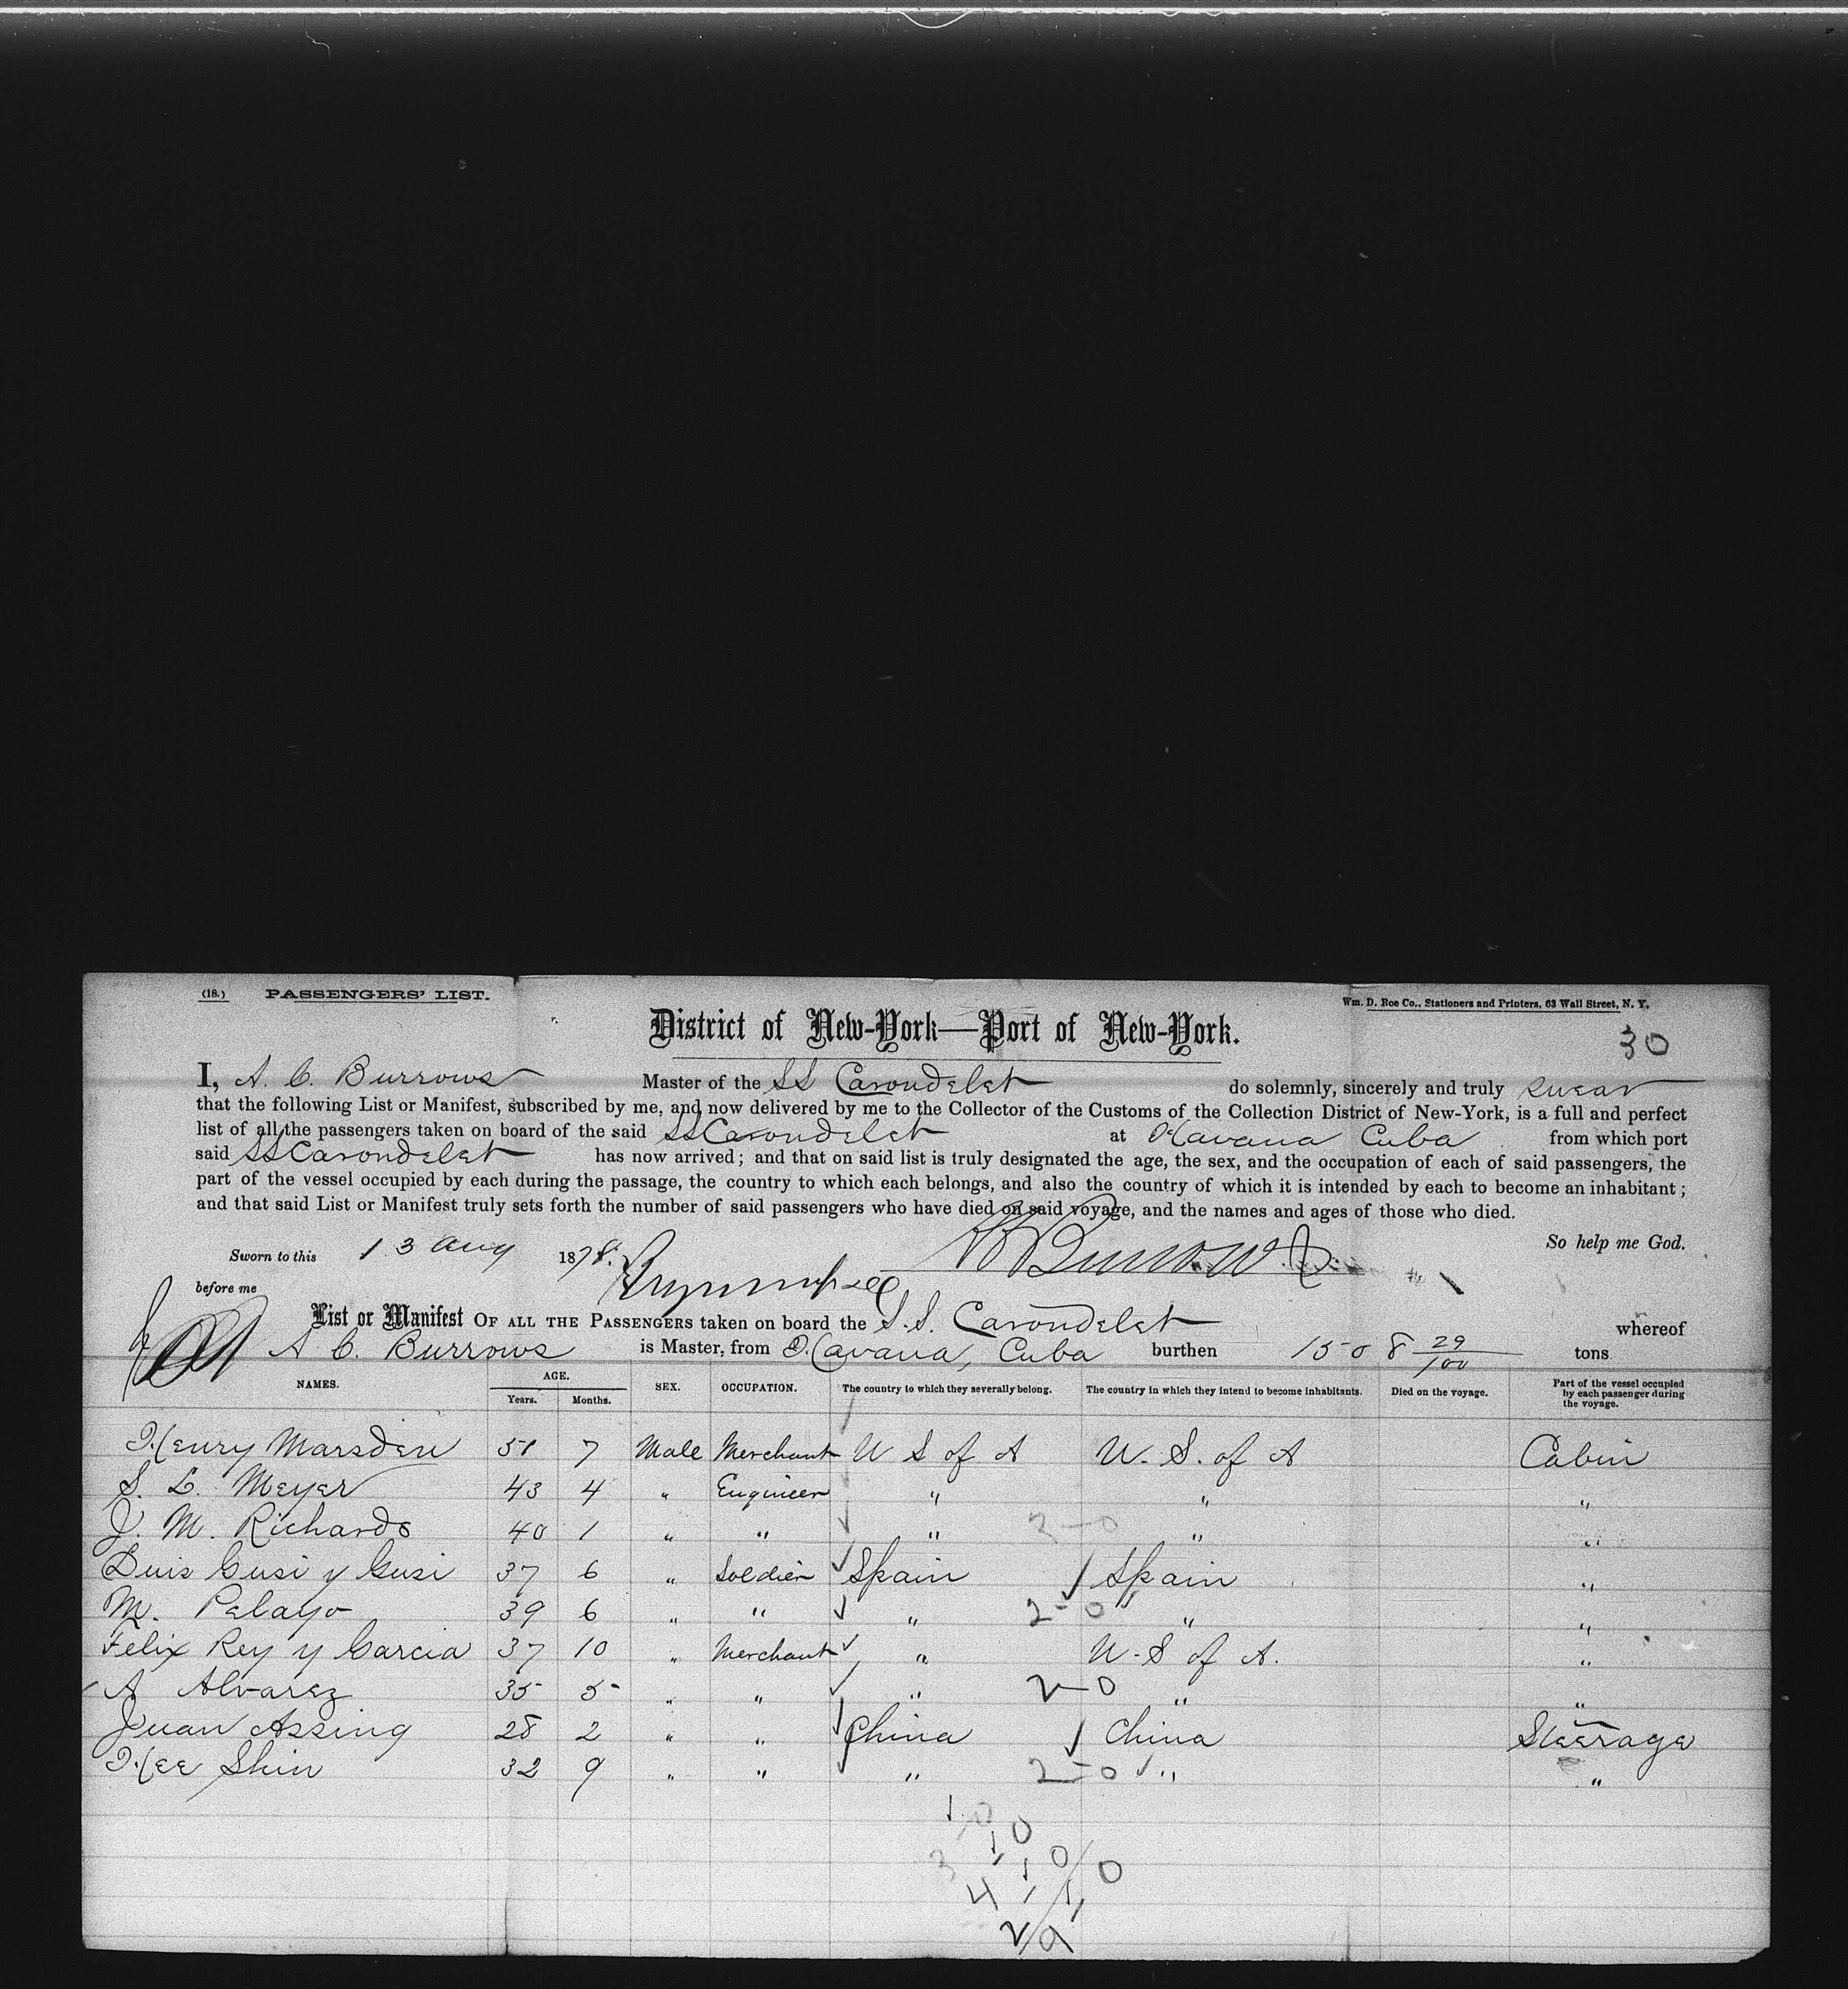 (18.) PASSENGERS' LIST.
Wm. D. Roe Co., Stationers and Printers, 63 Wall Street, N. Y.
District of New-York—Port of New-York.
30
I, A. C. Burrows Master of the SS Carondelet do solemnly, sincerely and truly swear
that the following List or Manifest, subscribed by me, and now delivered by me to the Collector of the Customs of the Collection District of New-York, is a full and perfect
list of all the passengers taken on board of the said SS Carondelet at Havana Cuba from which port
said SS Carondelet has now arrived; and that on said list is truly designated the age, the sex, and the occupation of each of said passengers, the
part of the vessel occupied by each during the passage, the country to which each belongs, and also the country of which it is intended by each to become an inhabitant;
and that said List or Manifest truly sets forth the number of said passengers who have died on said voyage, and the names and ages of those who died.
So help me God.
Sworn to this 13 Aug 1878.
before me
List or Manifest OF ALL THE PASSENGERS taken on board the S.S. Carondelet whereof
A C. Burrows is Master, from Havana, Cuba burthen 1508 29/100 tons
NAMES. AGE. Years. Months. SEX. OCCUPATION. The country to which they severally belong. The country in which they intend to become inhabitants. Died on the voyage. Part of the vessel occupied by each passenger during the voyage.
Henry Marsden 51 7 Male Merchant U S of A U. S. of A Cabin
S. L. Meyer 43 4 " Engineer " " "
J. M. Richards 40 1 " " " 3-0 " "
Luis Cusi y Gusi 37 6 " Soldier Spain Spain "
M. Pelayo 39 6 " " " 2-0 " "
Felix Rey y Garcia 37 10 " Merchant " U-S of A. "
A Alvarez 35 5 " " " 2-0 " "
Juan Assing 28 2 " " China China Steerage
Hee Shin 32 9 " " " 2-0 " "